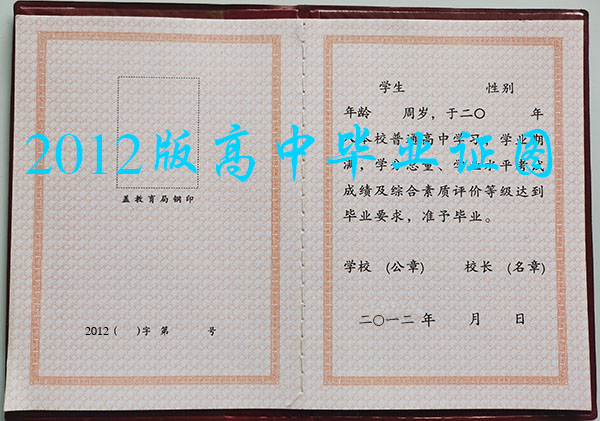 盖教育局钢印
2012 ( )字 第 号
2012版高中毕业证图
学生 性别
年龄 周岁，于二〇 年
本校普通高中学习，学业期
满，学分总量、学业水平考试
成绩及综合素质评价等级达到
毕业要求，准予毕业。
学校 (公章) 校长 (名章)
二〇一二 年 月 日